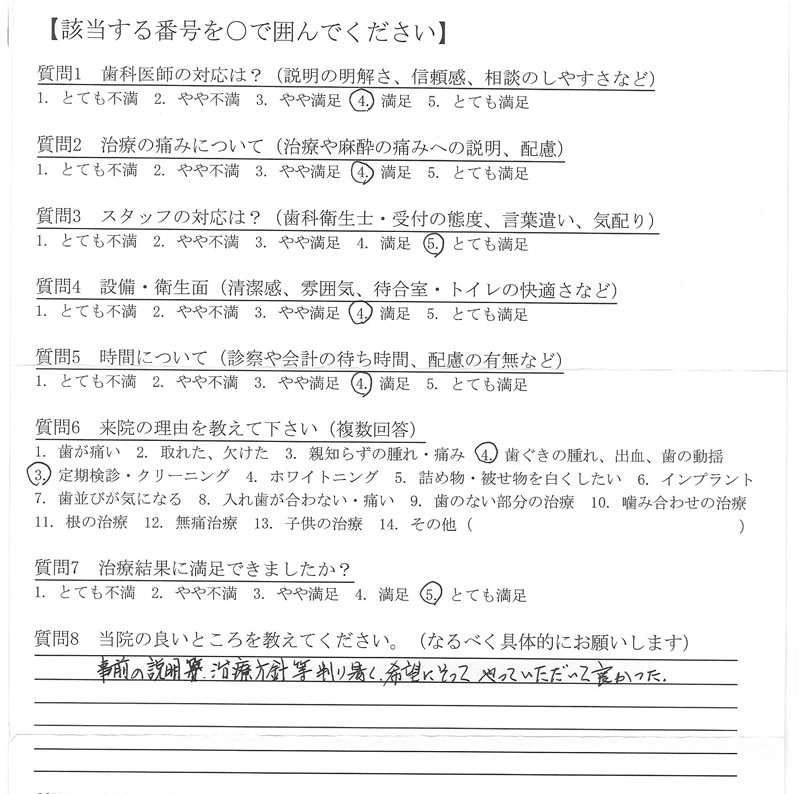 【該当する番号を○で囲んでください】
質問1 歯科医師の対応は？（説明の明解さ、信頼感、相談のしやすさなど）
1. とても不満 2. やや不満 3. やや満足 4. 満足 5. とても満足
質問2 治療の痛みについて（治療や麻酔の痛みへの説明、配慮）
1. とても不満 2. やや不満 3. やや満足 4. 満足 5. とても満足
質問3 スタッフの対応は？（歯科衛生士・受付の態度、言葉遣い、気配り）
1. とても不満 2. やや不満 3. やや満足 4. 満足 5. とても満足
質問4 設備・衛生面（清潔感、雰囲気、待合室・トイレの快適さなど）
1. とても不満 2. やや不満 3. やや満足 4. 満足 5. とても満足
質問5 時間について（診察や会計の待ち時間、配慮の有無など）
1. とても不満 2. やや不満 3. やや満足 4. 満足 5. とても満足
質問6 来院の理由を教えて下さい（複数回答）
1. 歯が痛い 2. 取れた、欠けた 3. 親知らずの腫れ・痛み 4. 歯ぐきの腫れ、出血、歯の動揺
3. 定期検診・クリーニング 4. ホワイトニング 5. 詰め物・被せ物を白くしたい 6. インプラント
7. 歯並びが気になる 8. 入れ歯が合わない・痛い 9. 歯のない部分の治療 10. 噛み合わせの治療
11. 根の治療 12. 無痛治療 13. 子供の治療 14. その他（ ）
質問7 治療結果に満足できましたか？
1. とても不満 2. やや不満 3. やや満足 4. 満足 5. とても満足
質問8 当院の良いところを教えてください。（なるべく具体的にお願いします）
事前の説明 治療方針等判り易く、希望にそって やっていただいて良かった。